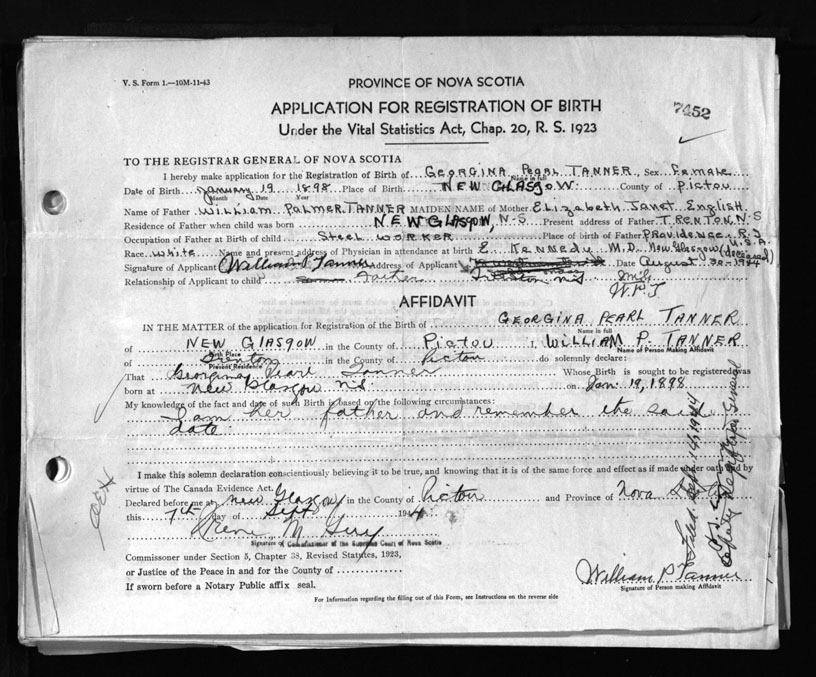 V. S. Form 1.—10M-11-43
PROVINCE OF NOVA SCOTIA
APPLICATION FOR REGISTRATION OF BIRTH
7452
Under the Vital Statistics Act, Chap. 20, R. S. 1923
TO THE REGISTRAR GENERAL OF NOVA SCOTIA
I hereby make application for the Registration of Birth of GEORGINA PEARL TANNER, Sex Female
Name in full
Date of Birth January 19 1898 Place of Birth NEW GLASGOW County of PICTOU
Month Date Year
Name of Father WILLIAM PALMER TANNER MAIDEN NAME of Mother ELIZABETH JANET ENGLISH
Residence of Father when child was born NEW GLASGOW, N-S Present address of Father TRENTON, N S
Occupation of Father at Birth of child STEEL WORKER Place of birth of Father PROVIDENCE R.I U.S.A.
Race white Name and present address of Physician in attendance at birth E KENNEDY M.D. New Glasgow (deceased)
Signature of Applicant William P Tanner Address of Applicant Date August 30 1944
Relationship of Applicant to child Father Trenton N.S
W.P.T
AFFIDAVIT
IN THE MATTER of the application for Registration of the Birth of GEORGINA PEARL TANNER
Name in full
of NEW GLASGOW in the County of PICTOU I, WILLIAM P. TANNER
Birth Place Name of Person Making Affidavit
of Trenton in the County of Pictou do solemnly declare:
Present Residence
That Georgina Pearl Tanner Whose Birth is sought to be registered was
born at New Glasgow N.S on Jan. 19, 1898
My knowledge of the fact and date of such Birth is based on the following circumstances:
I am her father and remember the said
date
I make this solemn declaration conscientiously believing it to be true, and knowing that it is of the same force and effect as if made under oath and by
virtue of The Canada Evidence Act.
Declared before me at New Glasgow in the County of Pictou and Province of Nova Scotia
this 7th day of Sept 1944
Signature of Commissioner of the Supreme Court of Nova Scotia
Commissioner under Section 5, Chapter 38, Revised Statutes, 1923,
or Justice of the Peace in and for the County of
If sworn before a Notary Public affix seal.
William P Tanner
Signature of Person making Affidavit
For Information regarding the filling out of this Form, see Instructions on the reverse side
Filed Sept 14, 1944
Deputy Registrar General